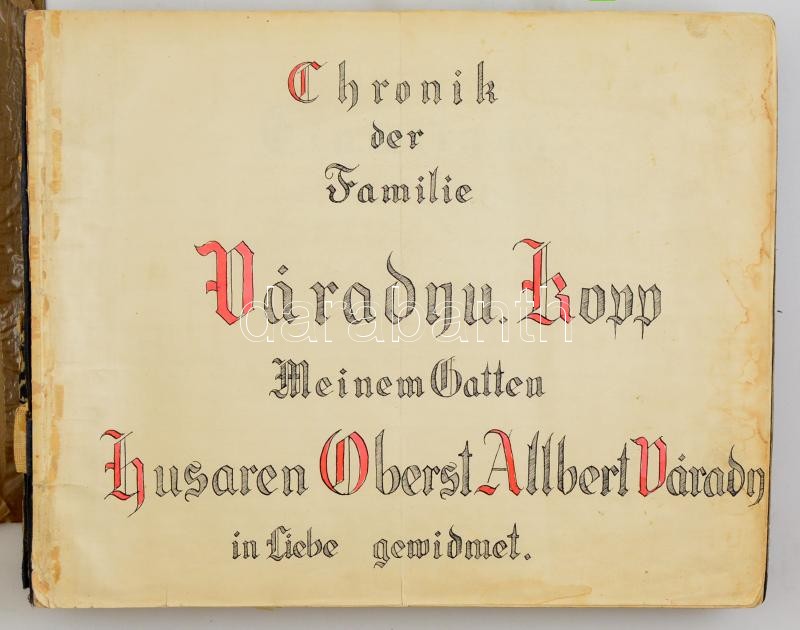 Chronik
der
Familie
Várady u. Kopp
darabanth
Meinem Gatten
Husaren Oberst Allbert Várady
in Liebe gewidmet.